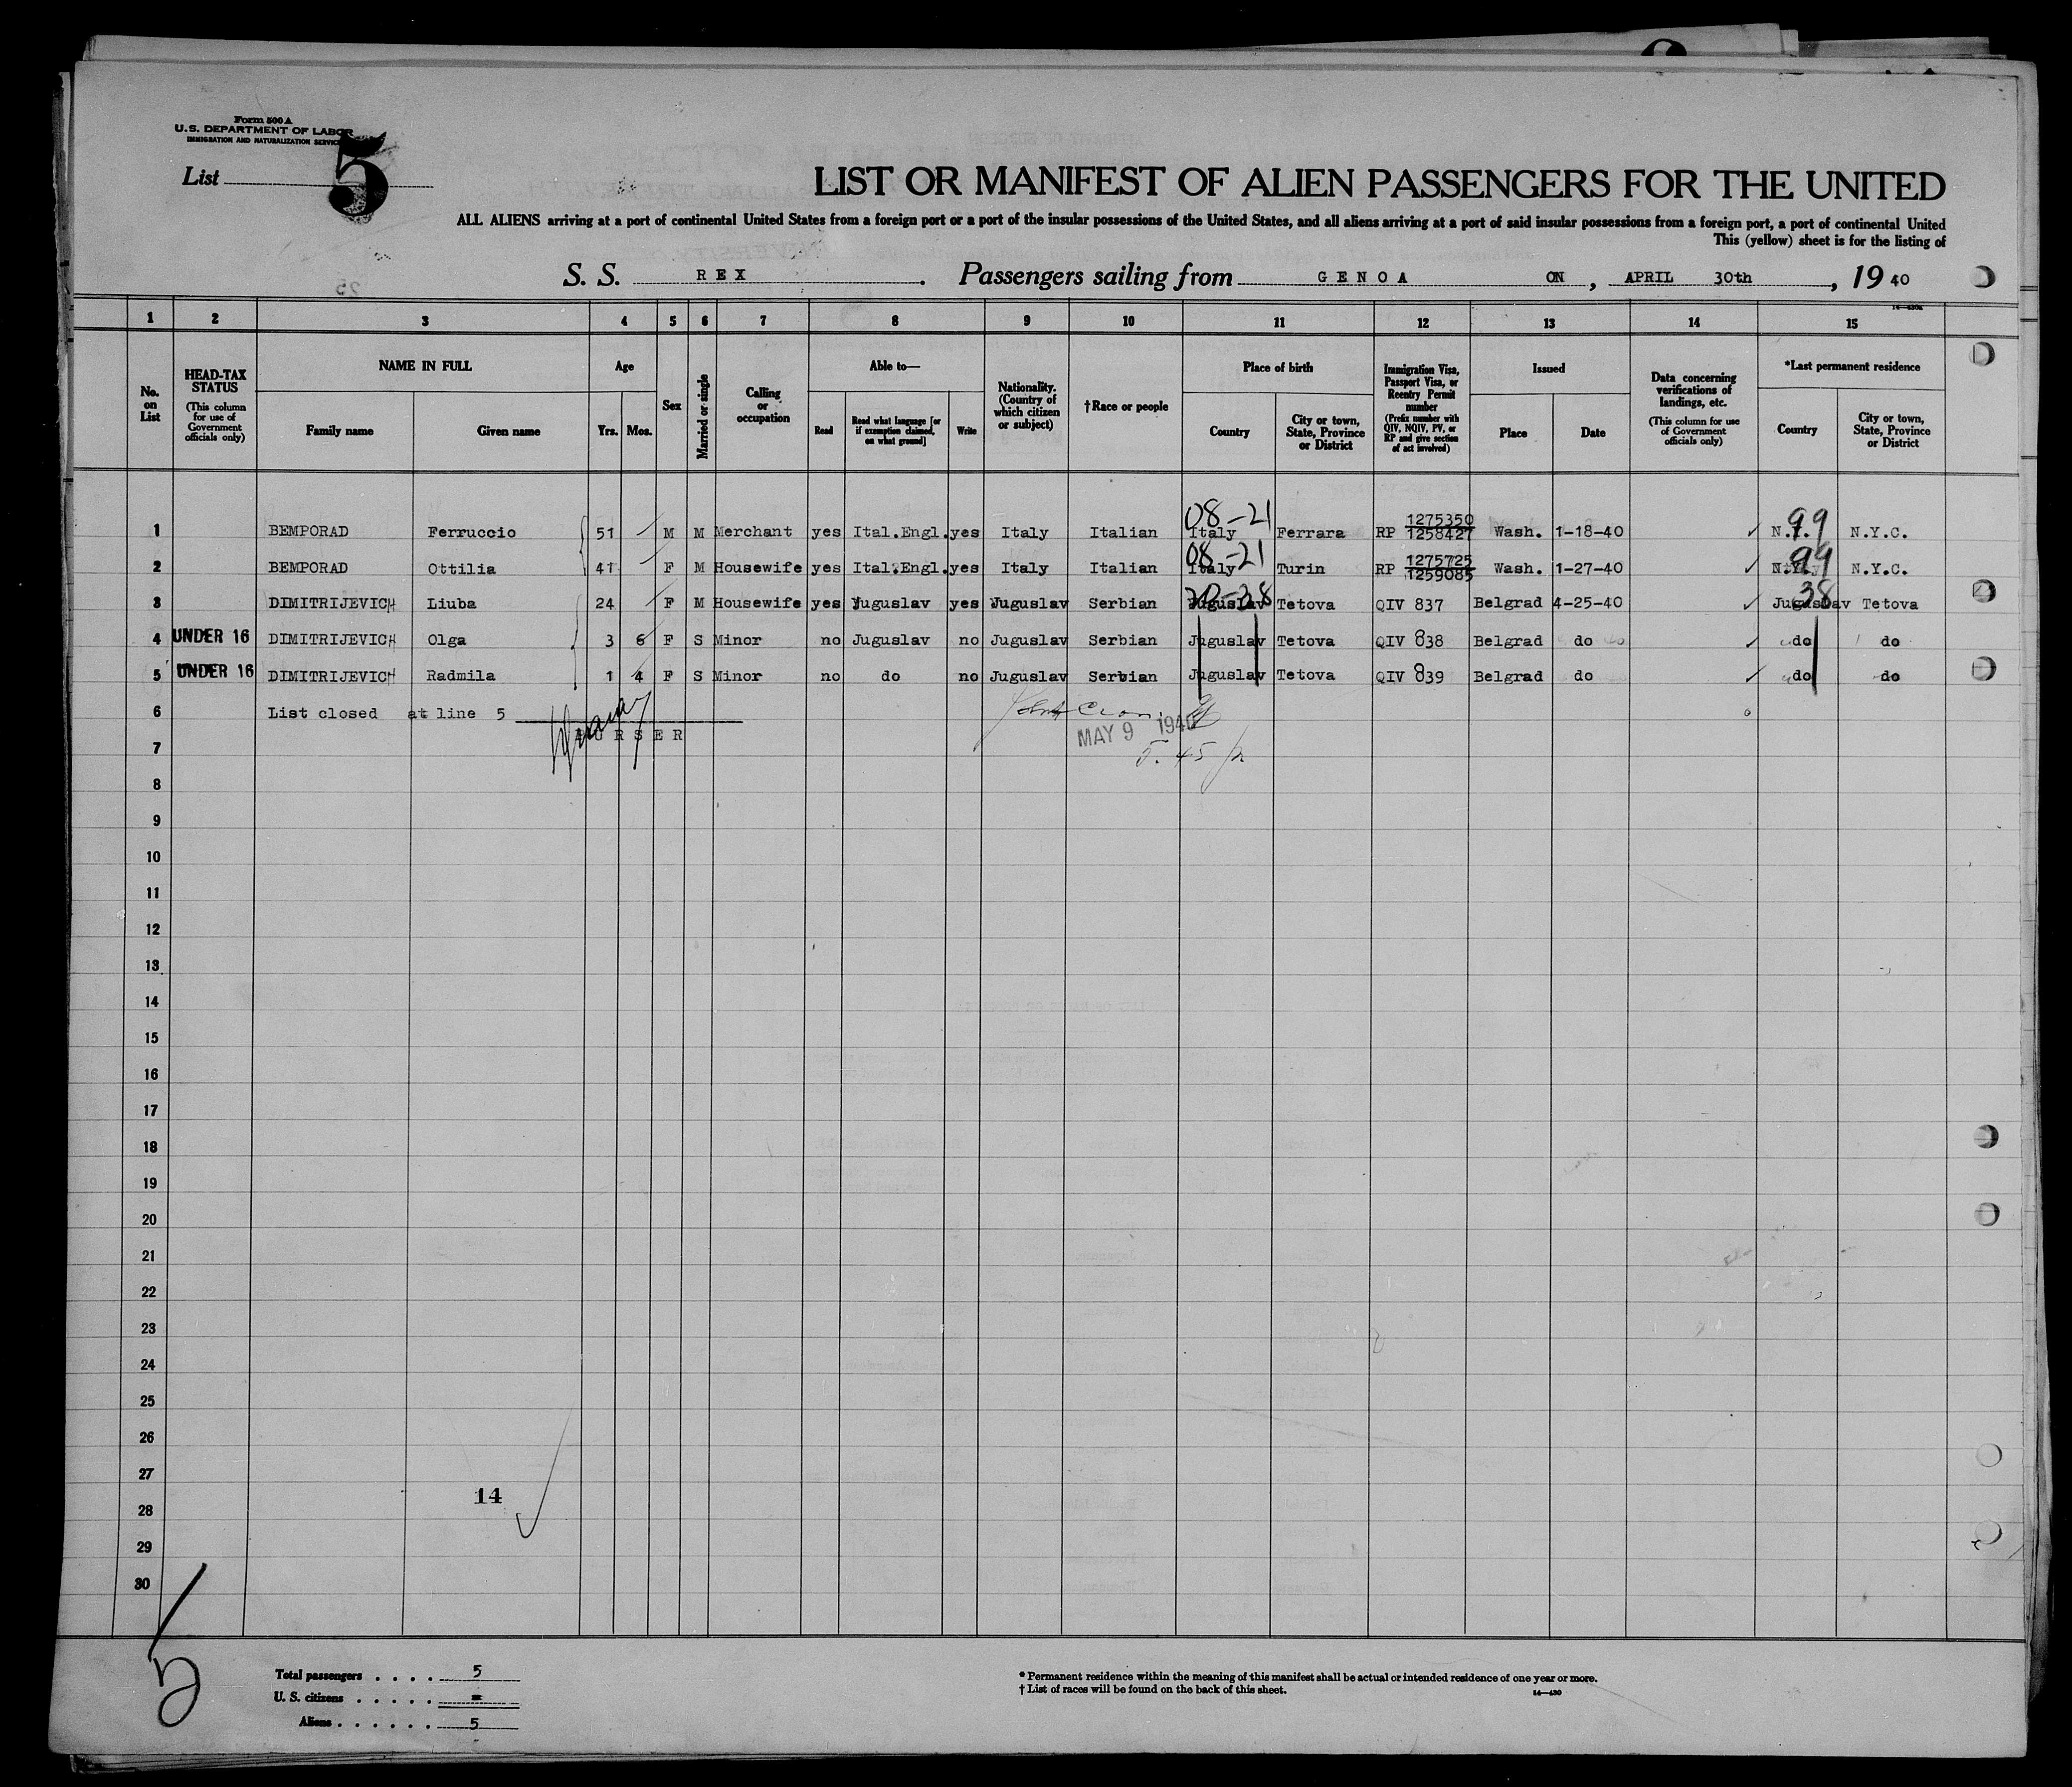 Form 500 A
U.S. DEPARTMENT OF LABOR
IMMIGRATION AND NATURALIZATION SERVICE
List 5
LIST OR MANIFEST OF ALIEN PASSENGERS FOR THE UNITED
ALL ALIENS arriving at a port of continental United States from a foreign port or a port of the insular possessions of the United States, and all aliens arriving at a port of said insular possessions from a foreign port, a port of continental United
This (yellow) sheet is for the listing of
S. S. REX. Passengers sailing from GENOA ON, APRIL 30th, 19 40
1 2 3 4 5 6 7 8 9 10 11 12 13 14 15
No. on List
HEAD-TAX STATUS
(This column for use of Government officials only)
NAME IN FULL
Family name Given name
Age
Yrs. Mos.
Sex
Married or single
Calling or occupation
Able to—
Read Read what language [or if exemption claimed, on what ground] Write
Nationality. (Country of which citizen or subject)
†Race or people
Place of birth
Country City or town, State, Province or District
Immigration Visa, Passport Visa, or Reentry Permit number
(Prefix number with QIV, NQIV, PV, or RP and give section of act involved)
Issued
Place Date
Data concerning verifications of landings, etc.
(This column for use of Government officials only)
*Last permanent residence
Country City or town, State, Province or District
08-21 99
1 BEMPORAD Ferruccio 51 M M Merchant yes Ital.Engl. yes Italy Italian Italy Ferrara RP 1275350 1258427 Wash. 1-18-40 N.Y. N.Y.C.
08-21 99
2 BEMPORAD Ottilia 41 F M Housewife yes Ital.Engl. yes Italy Italian Italy Turin RP 1275725 1259085 Wash. 1-27-40 N.Y. N.Y.C.
38
3 DIMITRIJEVICH Liuba 24 F M Housewife yes Juguslav yes Juguslav Serbian Juguslav Tetova QIV 837 Belgrad 4-25-40 Juguslav Tetova
4 UNDER 16 DIMITRIJEVICH Olga 3 6 F S Minor no Juguslav no Juguslav Serbian Juguslav Tetova QIV 838 Belgrad do do do
5 UNDER 16 DIMITRIJEVICH Radmila 1 4 F S Minor no do no Juguslav Serbian Juguslav Tetova QIV 839 Belgrad do do do
6 List closed at line 5
PURSER
MAY 9 1940
5.45
7
8
9
10
11
12
13
14
15
16
17
18
19
20
21
22
23
24
25
26
27
14
28
29
30
5
Total passengers . . . . 5
U. S. citizens . . . . . =
Aliens . . . . . . 5
* Permanent residence within the meaning of this manifest shall be actual or intended residence of one year or more.
† List of races will be found on the back of this sheet.
14—430